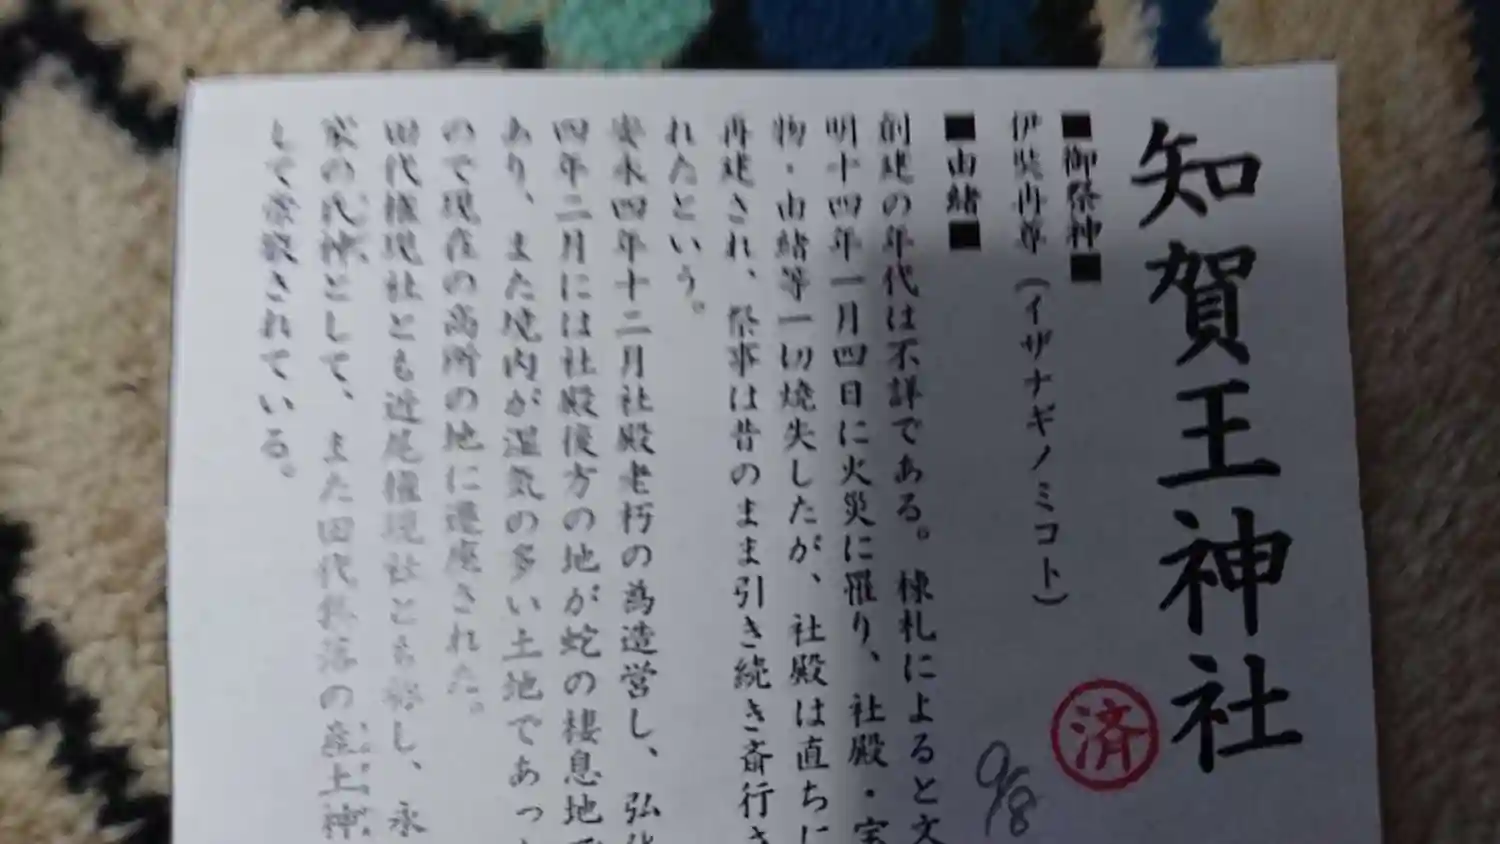 知賀王神社
済
9/8
■御祭神■
伊弉冉尊（イザナギノミコト）
■由緒■
創建の年代は不詳である。棟札によると文
明十四年一月四日に火災に罹り、社殿・宝
物・由緒等一切焼失したが、社殿は直ちに
再建され、祭事は昔のまま引き続き斎行さ
れたという。
安永四年十二月社殿老朽の為造営し、弘化
四年二月には社殿後方の地が蛇の棲息地で
あり、また境内が湿気の多い土地であっ
ので現在の高所の地に遷座された。
田代権現社とも近尾権現社とも称し、永
家の氏神として、また田代集落の産土神
して崇敬されている。